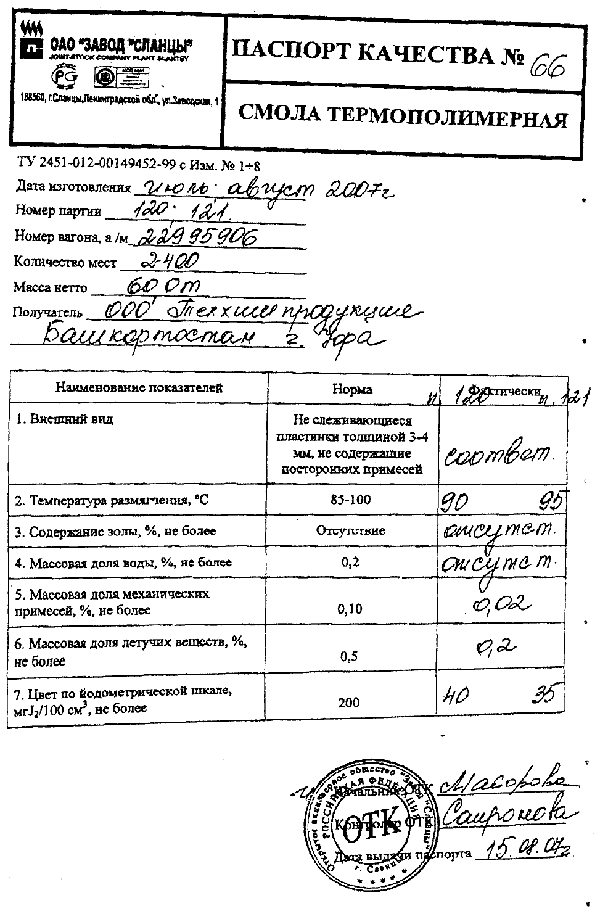 ОАО "ЗАВОД "СЛАНЦЫ"
JOINT-STOCK COMPANY PLANT SLANTSY
188560, г.Сланцы,Ленинградской обл., ул.Заводская, 1
ПАСПОРТ КАЧЕСТВА № 66
СМОЛА ТЕРМОПОЛИМЕРНАЯ
ТУ 2451-012-00149452-99 с Изм. № 1÷8
Дата изготовления июль; август 2007г
Номер партии 120; 121
Номер вагона, а /м 22995906
Количество мест 2400
Масса нетто 60 0т
Получатель ООО
Башкортостан г. Уфа
Наименование показателей Норма Фактически
п. 120 п. 121
1. Внешний вид
Не слеживающиеся
пластинки толщиной 3-4
мм, не содержащие
посторонних примесей
соответ.
2. Температура размягчения, °С 85-100 90 95
3. Содержание золы, %, не более Отсутствие отсутст.
4. Массовая доля воды, %, не более 0,2 отсутст.
5. Массовая доля механических
примесей, %, не более 0,10 0,02
6. Массовая доля летучих веществ, %,
не более 0,5 0,2
7. Цвет по йодометрической шкале,
мгJ₂/100 см³, не более 200 40 35
Начальник ОТК
Контролер ОТК
Дата выдачи паспорта 15.08.07г.
Открытое акционерное общество "Завод "Сланцы"
РОССИЙСКАЯ ФЕДЕРАЦИЯ
ОТК
г. Сланцы